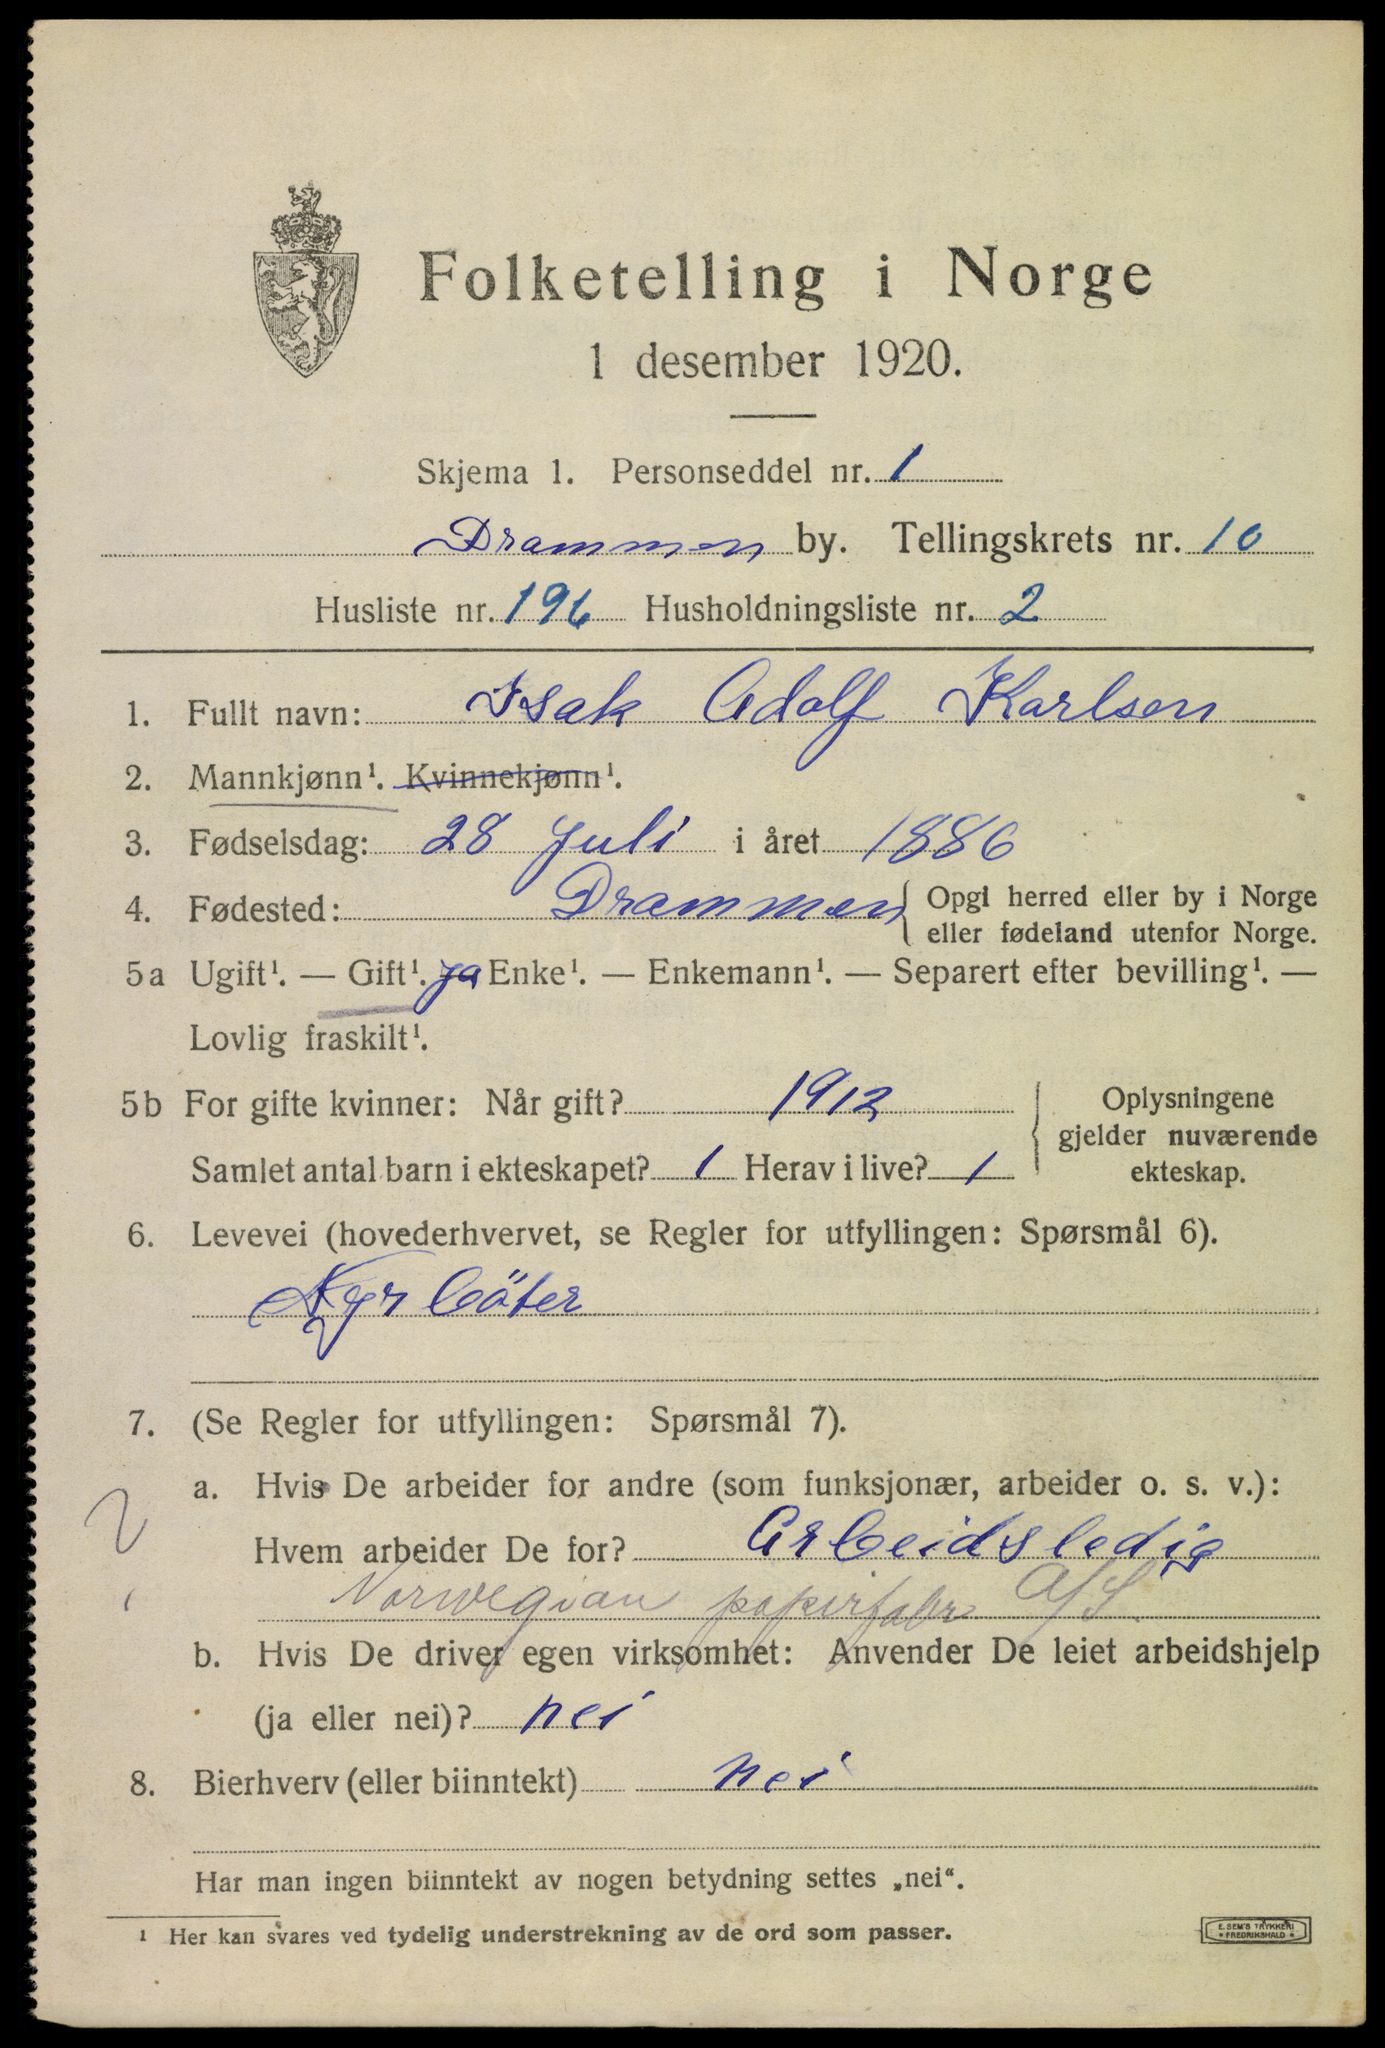 Folketelling i Norge
1 desember 1920.
Skjema 1. Personseddel nr. 1
Drammen by. Tellingskrets nr. 10
Husliste nr. 196 Husholdningsliste nr. 2
1. Fullt navn: Isak Adolf Karlsen
2. Mannkjønn¹. Kvinnekjønn¹.
3. Fødselsdag: 28 Juli i året 1886
4. Fødested: Drammen { Opgi herred eller by i Norge
eller fødeland utenfor Norge.
5a Ugift¹. — Gift¹. ja Enke¹. — Enkemann¹. — Separert efter bevilling¹. —
Lovlig fraskilt¹.
5b For gifte kvinner: Når gift? 1912
Samlet antal barn i ekteskapet? 1 Herav i live? 1
Oplysningene
gjelder nuværende
ekteskap.
6. Levevei (hovederhvervet, se Regler for utfyllingen: Spørsmål 6).
Fyrböter
7. (Se Regler for utfyllingen: Spørsmål 7).
a. Hvis De arbeider for andre (som funksjonær, arbeider o. s. v.):
Hvem arbeider De for? Arbeidsledig
Norwegian papirfabr A/S.
b. Hvis De driver egen virksomhet: Anvender De leiet arbeidshjelp
(ja eller nei)? nei
8. Bierhverv (eller biinntekt) nei
Har man ingen biinntekt av nogen betydning settes „nei“.
¹ Her kan svares ved tydelig understrekning av de ord som passer.
E. SEM'S TRYKKERI
* FREDRIKSHALD *